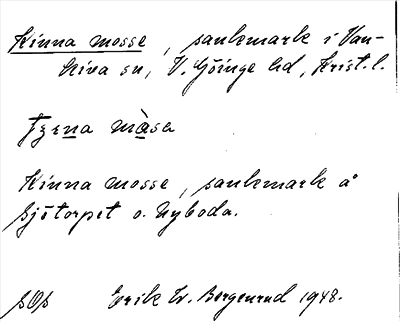 Kinna mosse, sankmark i Van-
kiva sn, V. Göinge hd, Krist. l.
måsa
Kinna mosse, sankmark å
Sjötorpet o. Nyboda.
Erik W. Bergenrud 1948.